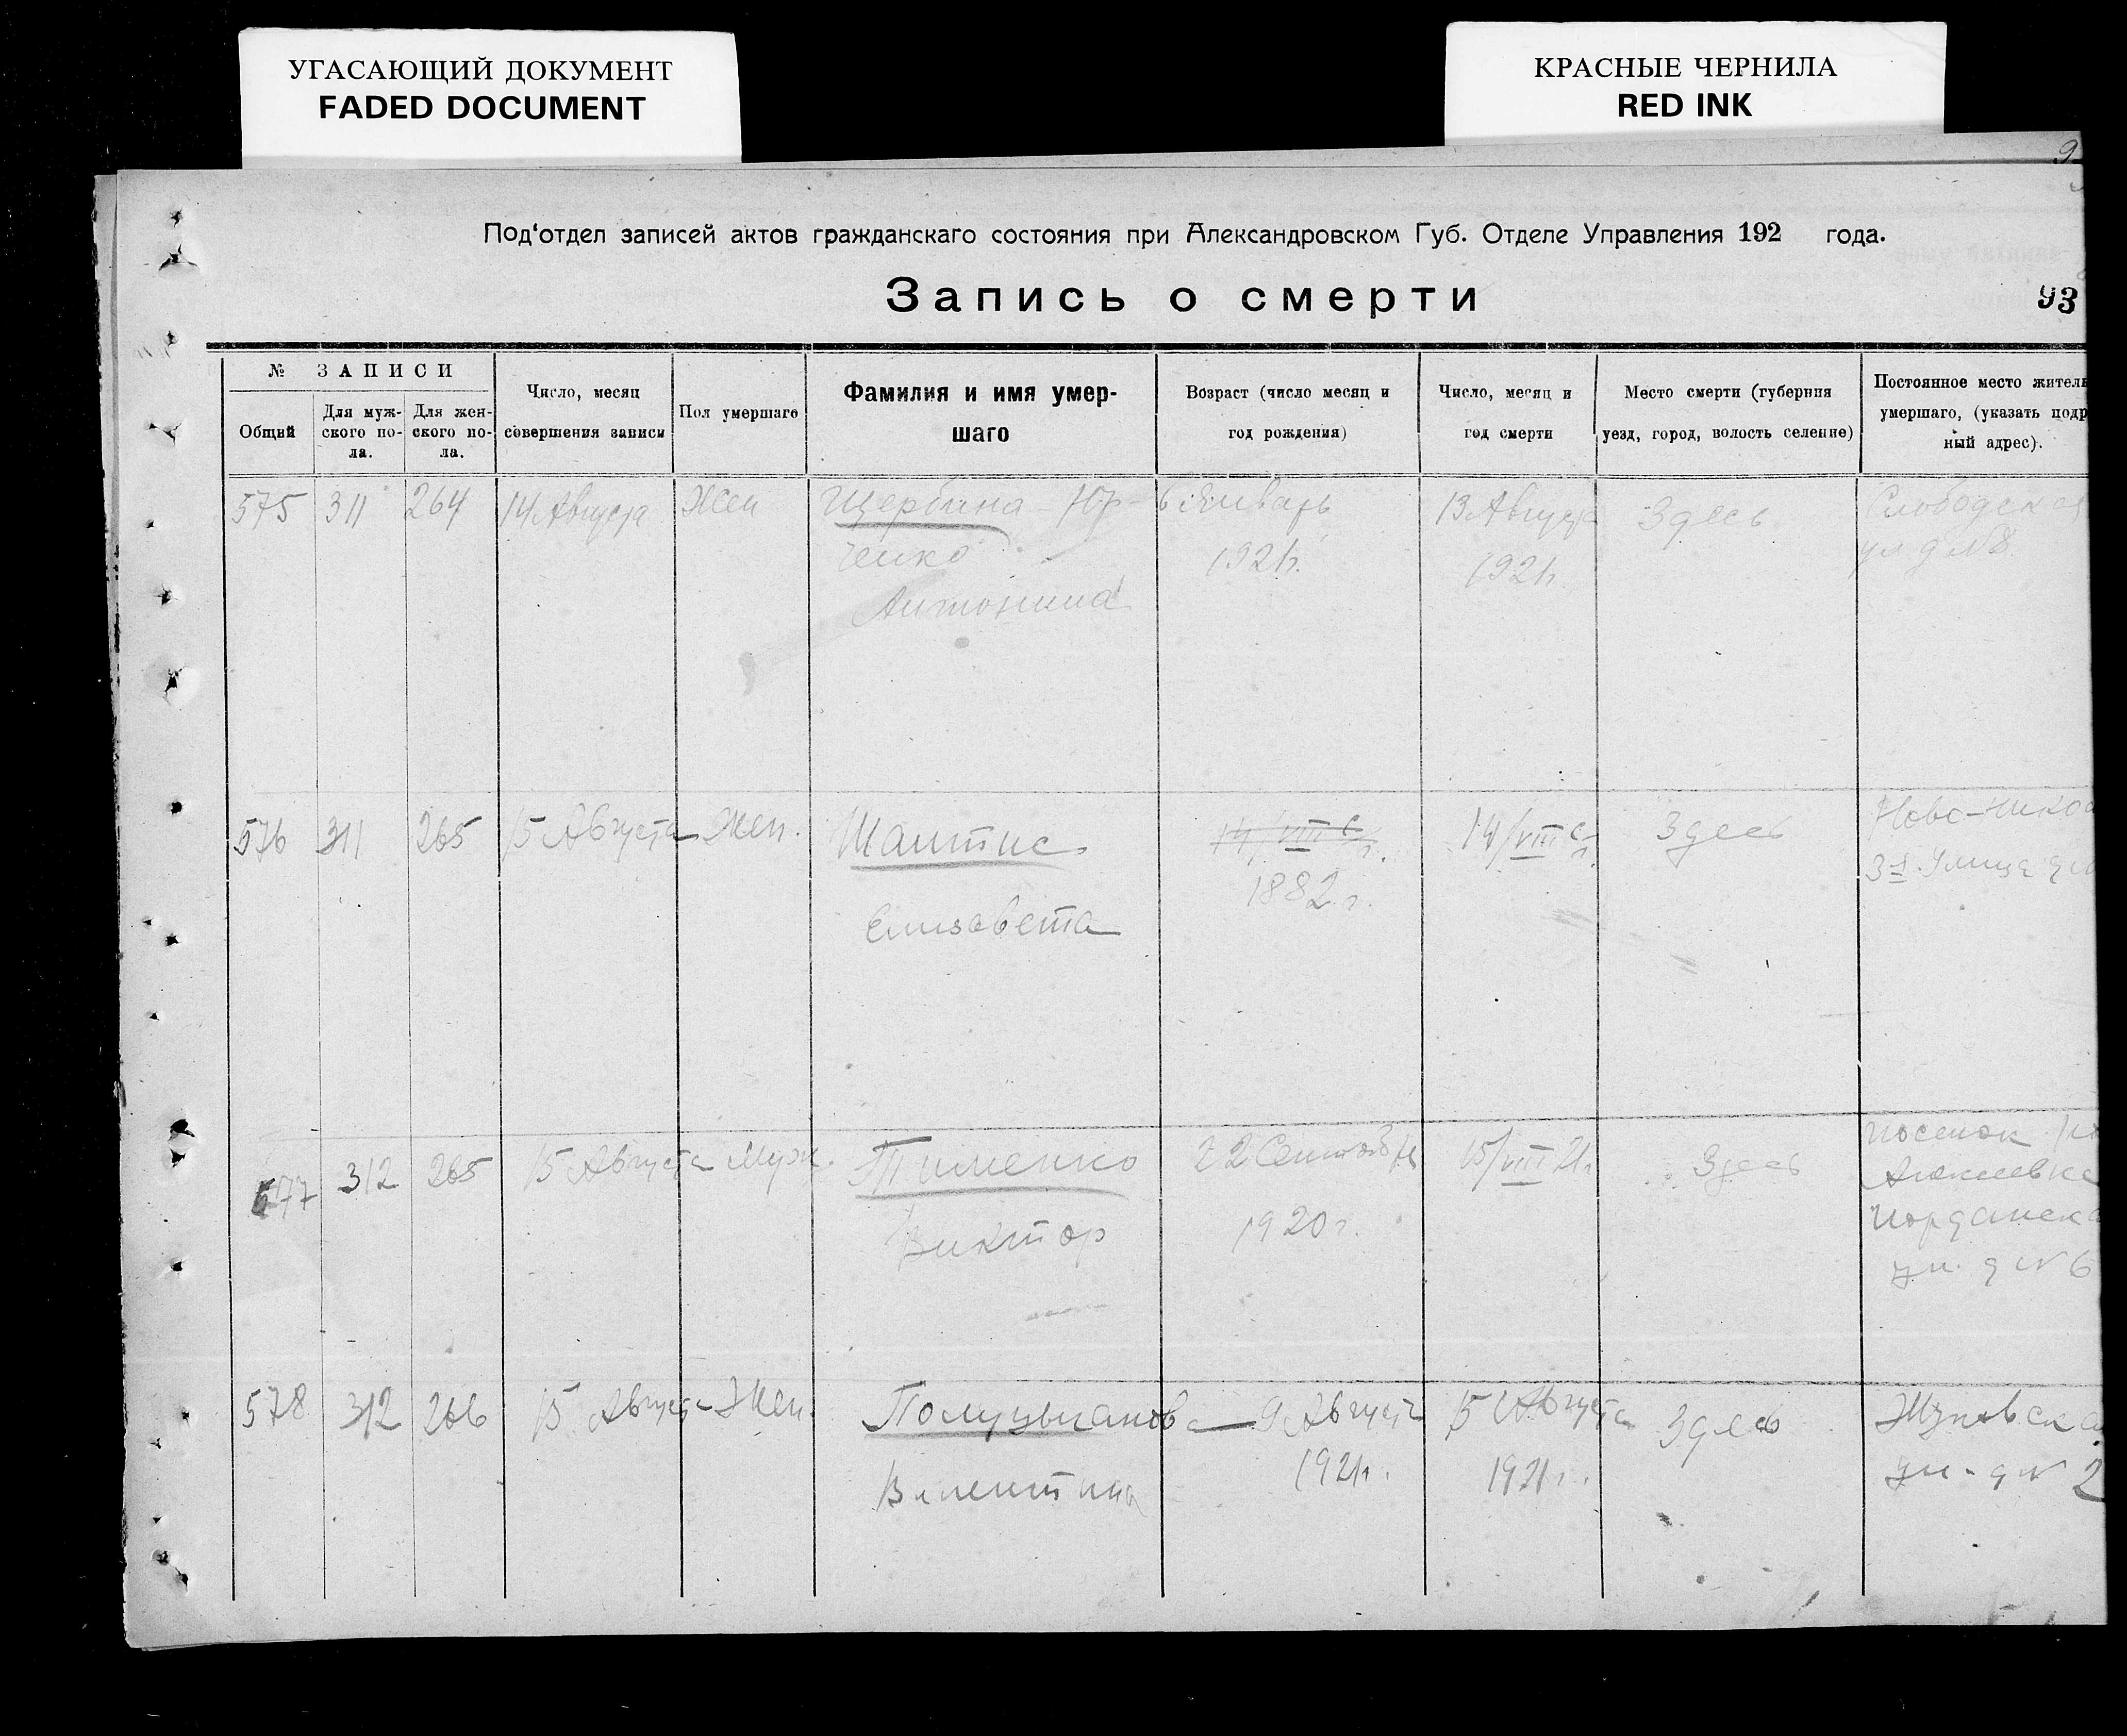 УГАСАЮЩИЙ ДОКУМЕНТ
FADED DOCUMENT
КРАСНЫЕ ЧЕРНИЛА
RED INK
9
Под‘отдел записей актов гражданскаго состояния при Александровском Губ. Отделе Управления 192 года.
Запись о смерти
93
№ ЗАПИСИ
Общий
Для муж-
ского по-
ла.
Для жен-
ского по-
ла.
Число, месяц
совершения записи
Пол умершаго
Фамилия и имя умер-
шаго
Возраст (число месяц и
год рождения)
Число, месяц и
год смерти
Место смерти (губерния
уезд, город, волость селение)
Постоянное место житель
умершаго, (указать подр
ный адрес).
575 311 264 14 Августа Жен Щербина - Юр- 6 Январь 13 Августа Здесь Слободская
ченко 1921г. 1921г. ул д №8.
Антонина
576 311 265 15 Августа Жен. Шантис 14/VIII с/г. 14/VIII с/г. Здесь Ново-Никол
1882 г. 3я Улица д
Елизавета
577 312 265 15 Августа Муж. Тименко 22 Сентября 15/VIII 21г Здесь поселок
Виктор 1920 г. ул. д № 6
578 312 266 15 Августа Жен. Полуцыганова 9 Августа 15 Августа Здесь Жуковска
Валентина 1921г. 1921г. ул - д № 2